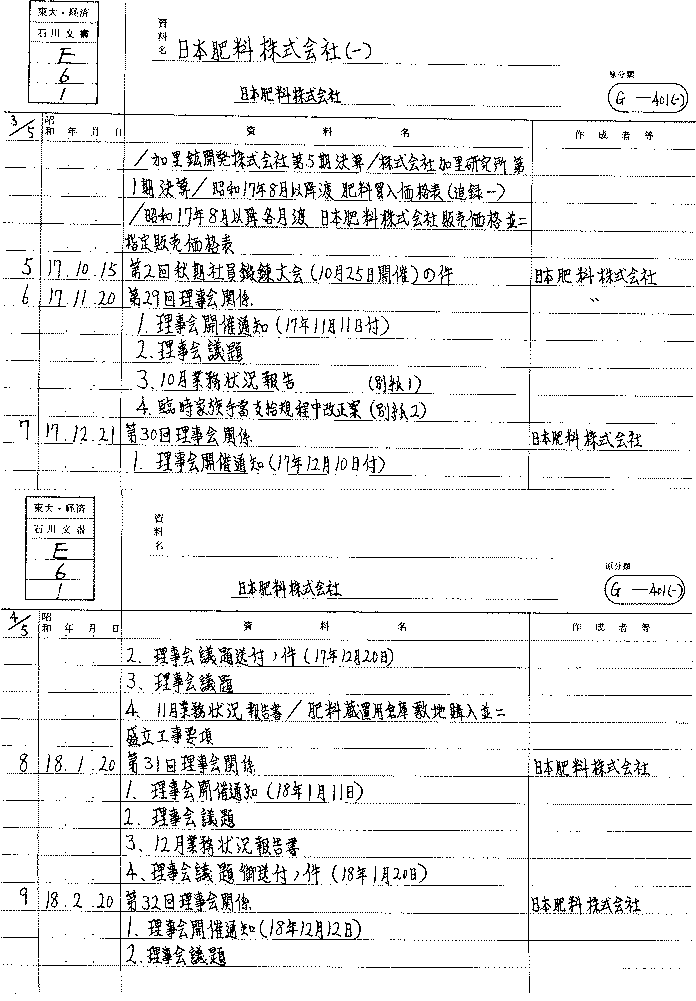 東大・経済
石川文書
E
6
1
資料名 日本肥料株式会社(一)
日本肥料株式会社
原分類
G-401(-)
3/5 昭和 年 月 日 資 料 名 作成者等
/加里鉱開発株式会社第5期決算/株式会社加里研究所第
1期決算/昭和17年8月以降渡 肥料買入価格表(追録一)
/昭和17年8月以降各月渡 日本肥料株式会社販売価格並ニ
指定販売価格表
5 17.10.15 第2回秋期社員鍛錬大会(10月25日開催)の件 日本肥料株式会社
6 17.11.20 第29回理事会関係 〃
1. 理事会開催通知(17年11月11日付)
2. 理事会議題
3. 10月業務状況報告 (別紙1)
4. 臨時家族手当支給規程中改正案(別紙2)
7 17.12.21 第30回理事会関係 日本肥料株式会社
1. 理事会開催通知(17年12月10日付)
東大・経済
石川文書
E
6
1
資料名
日本肥料株式会社
原分類
G-401(-)
4/5 昭和 年 月 日 資 料 名 作成者等
2、理事会議題送付ノ件(17年12月20日)
3、理事会議題
4、11月業務状況報告書/肥料蔵置用倉庫敷地購入並ニ
盛立工事要項
8 18.1.20 第31回理事会関係 日本肥料株式会社
1. 理事会開催通知(18年1月11日)
2. 理事会議題
3、12月業務状況報告書
4、理事会議題御送付ノ件(18年1月20日)
9 18.2.20 第32回理事会関係 日本肥料株式会社
1. 理事会開催通知(18年12月12日)
2. 理事会議題